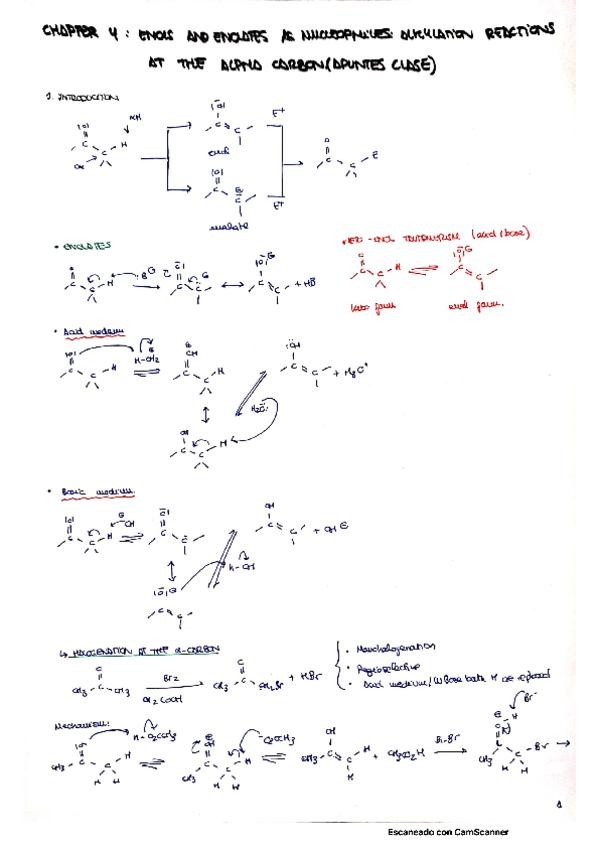 CHAPTER 4: ENOLS AND ENOLATES AS NUCLEOPHILES: ALKYLATION REACTIONS
AT THE ALPHA CARBON (APUNTES CLASE)
1. INTRODUCTION
enol
E+
enolate
E+
• ENOLATES
+ HB
• KETO-ENOL TAUTOMERISM (acid/base)
keto form
enol form.
• Acid medium
+ H3O+
H2O:
• Basic medium.
+ OH
H-OH
↳ HALOGENATION AT THE α-CARBON
CH3
CH3
Br2
CH3COOH
CH3
CH2Br
+ HBr
• Monohalogenation
• Regioselective
Mechanism:
CH3
H-O2CCH3
CH3
-O2CCH3
CH3
+ CH3CO2H
Br-Br
CH3
Br
Br-
1
Escaneado con CamScanner